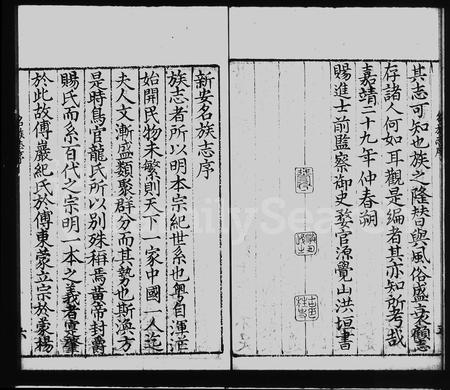 其志可知也族之隆替與風俗盛衰顧志
存諸人何如耳觀是編者其亦知所考哉
嘉靖二十九年仲春朔
賜進士前監察御史婺官源覺山洪垣書
新安名族志序
族志者所以明本宗紀世系也粵自渾沌
始開民物未繁則天下一家中國一人迄
夫人文漸盛類聚群分而其勢也斯渙方
是時鳥官龍氏所以別殊稱焉黃帝封爵
賜氏而系百代之宗明一本之義者寔肇
於此故傅巖紀氏於傅東蒙立宗於蒙楊
六